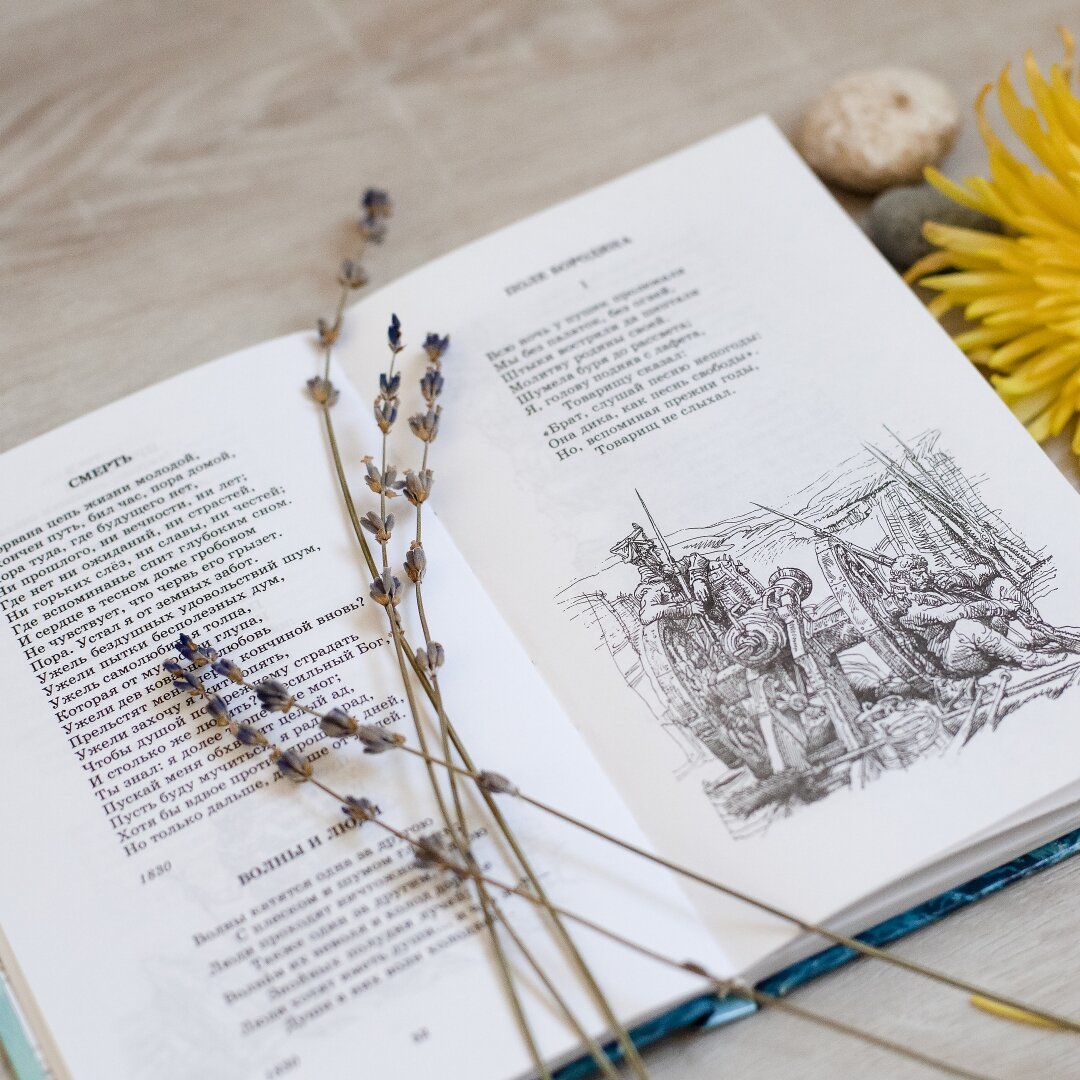 СМЕРТЬ
цепь жизни молодой,
путь, бил час, пора домой,
Пора туда, где будущего нет,
Ни прошлого, ни вечности, ни лет;
Где нет ни ожиданий, ни страстей,
Ни горьких слёз, ни славы, ни честей;
Где вспоминанье спит глубоким сном,
И сердце в тесном доме гробовом
Не чувствует, что червь его грызет.
Пора. Устал я от земных забот.
Ужель бездушных удовольствий шум,
Ужели пытки бесполезных дум,
Ужель самолюбивая толпа,
Которая от мудрости глупа,
Ужели дев коварная любовь
Прельстят меня перед кончиной вновь?
Ужели захочу я жить опять,
Чтобы душой по-прежнему страдать
И столько же любить? Всесильный Бог,
Ты знал: я долее терпеть не мог;
Пускай меня обхватит целый ад,
Пусть буду мучиться, я рад, я рад,
Хотя бы вдвое против прошлых дней,
Но только дальше, дальше от людей.
1830
ВОЛНЫ И ЛЮДИ
Волны катятся одна за другою
С плеском и шумом глухим;
Люди проходят ничтожной толпою
Также один за другим.
Волнам их неволя и холод дороже
Знойных полудня лучей;
Люди хотят иметь души... и что же? –
Души в них волн холодней!
1830
ПОЛЕ БОРОДИНА
I
Всю ночь у пушек пролежали
Мы без палаток, без огней,
Штыки вострили да шептали
Молитву родины своей.
Шумела буря до рассвета;
Я, голову подняв с лафета,
Товарищу сказал:
«Брат, слушай песню непогоды:
Она дика, как песнь свободы».
Но, вспоминая прежни годы,
Товарищ не слыхал.